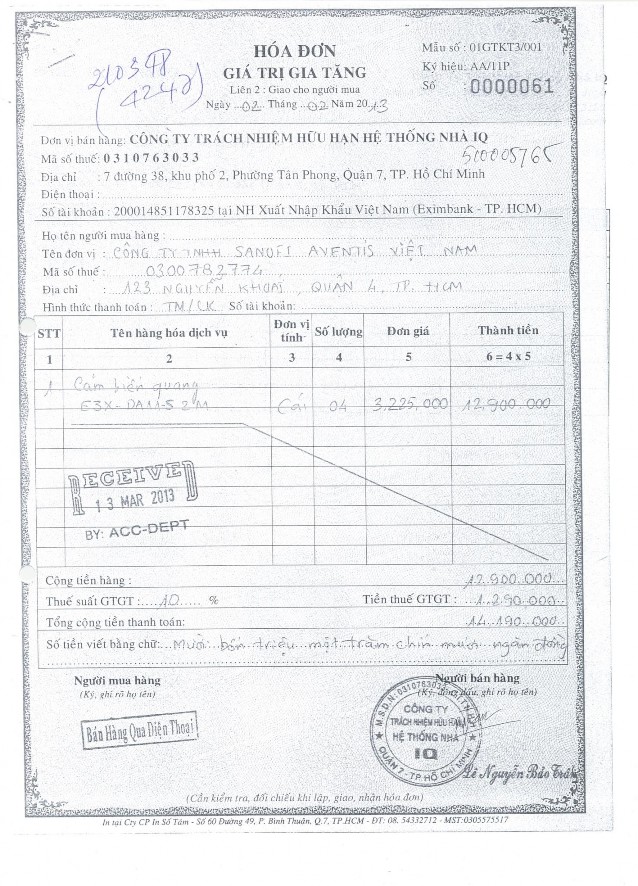 210348
(4242)
HÓA ĐƠN
GIÁ TRỊ GIA TĂNG
Liên 2 : Giao cho người mua
Ngày ...02... Tháng ...02 Năm 2013
Mẫu số : 01GTKT3/001
Ký hiệu: AA/11P
Số : 0000061
Đơn vị bán hàng: CÔNG TY TRÁCH NHIỆM HỮU HẠN HỆ THỐNG NHÀ IQ
Mã số thuế: 0310763033
510005765
Địa chỉ : 7 đường 38, khu phố 2, Phường Tân Phong, Quận 7, TP. Hồ Chí Minh
Điện thoại :
Số tài khoản : 200014851178325 tại NH Xuất Nhập Khẩu Việt Nam (Eximbank - TP. HCM)
Họ tên người mua hàng :
Tên đơn vị : CÔNG TY TNHH SANOFI AVENTIS VIỆT NAM
Mã số thuế : 0300782774
Địa chỉ : 123 NGUYỄN KHOÁI, QUẬN 4, TP. HCM
Hình thức thanh toán : TM/CK Số tài khoản:
STT Tên hàng hóa dịch vụ Đơn vị tính Số lượng Đơn giá Thành tiền
1 2 3 4 5 6 = 4 x 5
1 Cảm biến quang
E3X-DA11-S 2M Cái 04 3,225,000 12.900.000
RECEIVED
13 MAR 2013
BY: ACC-DEPT
Cộng tiền hàng : 12.900.000
Thuế suất GTGT : 10 % Tiền thuế GTGT : 1.290.000
Tổng cộng tiền thanh toán: 14.190.000
Số tiền viết bằng chữ: Mười bốn triệu một trăm chín mươi ngàn đồng
Người mua hàng
(Ký, ghi rõ họ tên)
Người bán hàng
(Ký, đóng dấu, ghi rõ họ tên)
Bán Hàng Qua Điện Thoại
M.S.D.N: 0310763033
CÔNG TY
TRÁCH NHIỆM HỮU HẠN
HỆ THỐNG NHÀ
IQ
QUẬN 7 - TP. HỒ CHÍ MINH
Lê Nguyễn Bảo Trân
(Cần kiểm tra, đối chiếu khi lập, giao, nhận hóa đơn)
In tại Cty CP In Số Tám - Số 60 Đường 49, P. Bình Thuận. Q.7, TP.HCM - ĐT: 08. 54332712 - MST:0305575517